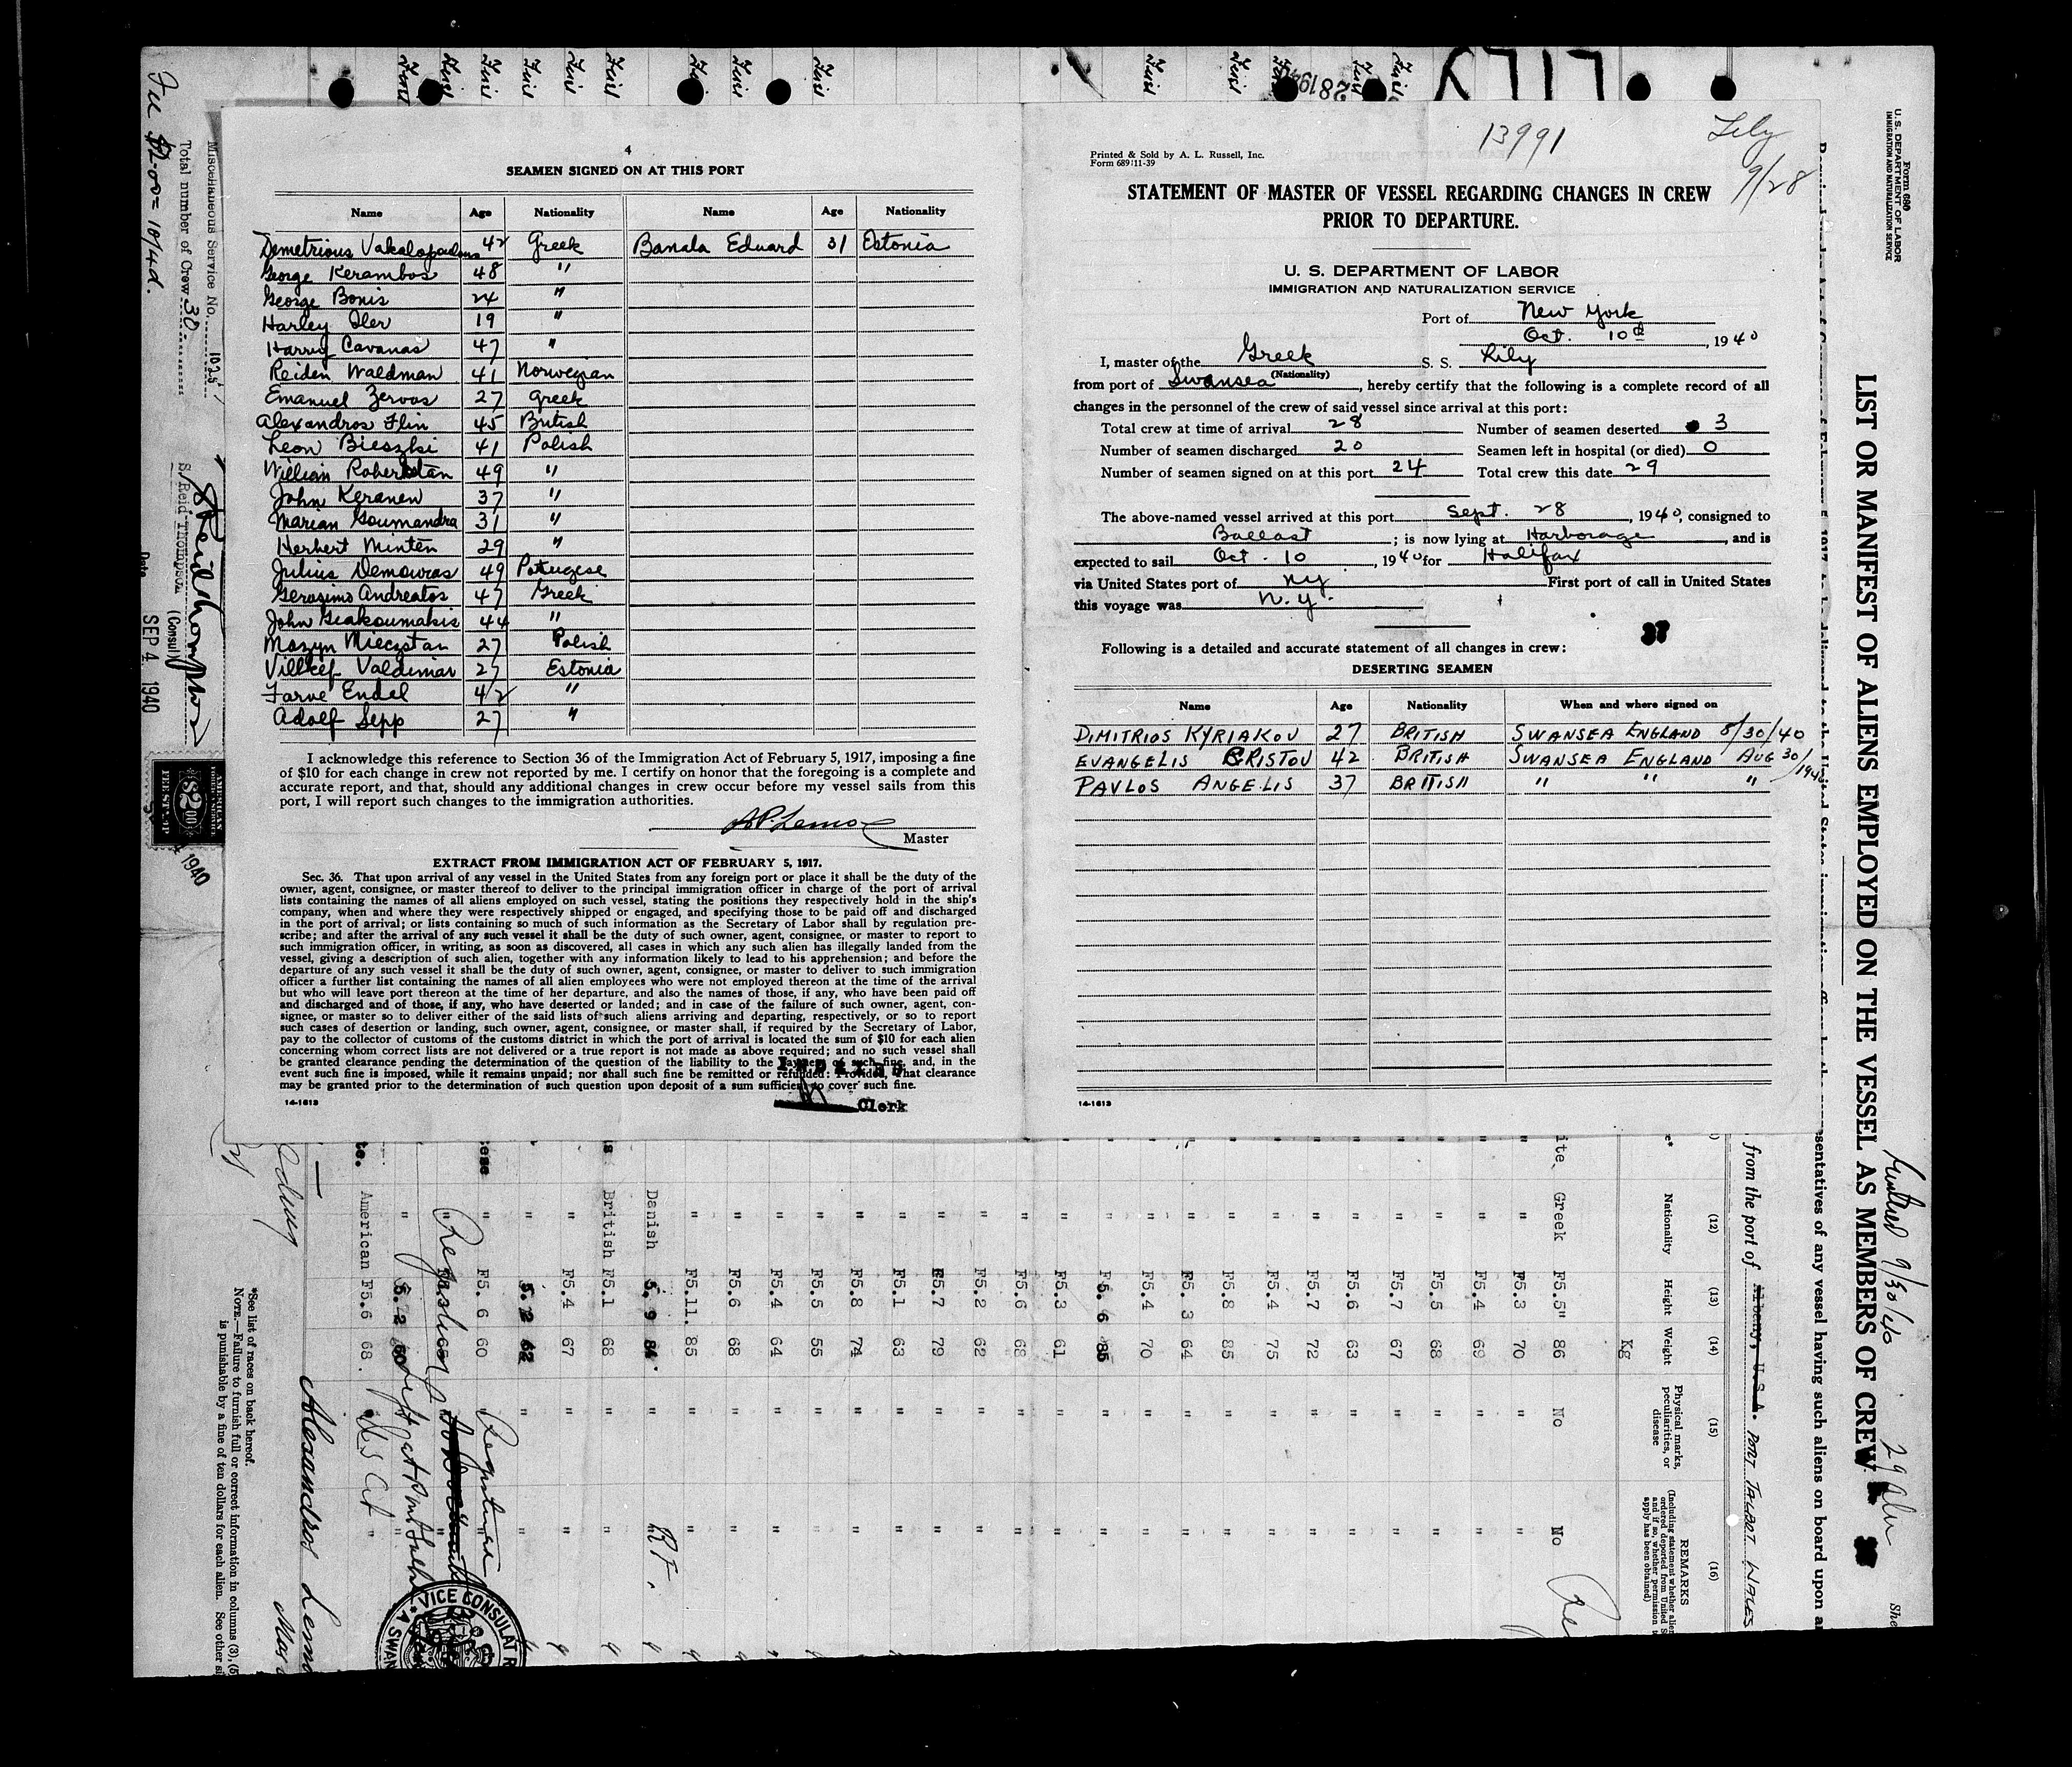 4
SEAMEN SIGNED ON AT THIS PORT
Name Age Nationality Name Age Nationality
Demetrious Vakalopoulous 42 Greek Banala Eduard 31 Estonia
George Kerambos 48 "
George Bonis 24 "
Harley Iler 19 "
Harry Cavanas 47 "
Reiden Waldman 41 Norwegian
Emanuel Zervos 27 Greek
Alexandros Flin 45 British
Leon Bieszki 41 Polish
William 49 "
John Keranen 37 "
Marian Goumandra 31 "
Herbert Minten 29 "
Julius Demouras 49 Potugese
Gerasimo Andreatos 47 Greek
John Giakoumakis 44 "
Mozyn Mieczstan 27 Polish
Villkef Valdimar 27 Estonia
Tarve Endel 42 "
Adolf Sepp 27 "
I acknowledge this reference to Section 36 of the Immigration Act of February 5, 1917, imposing a fine
of $10 for each change in crew not reported by me. I certify on honor that the foregoing is a complete and
accurate report, and that, should any additional changes in crew occur before my vessel sails from this
port, I will report such changes to the immigration authorities.
Master
EXTRACT FROM IMMIGRATION ACT OF FEBRUARY 5, 1917.
Sec. 36. That upon arrival of any vessel in the United States from any foreign port or place it shall be the duty of the
owner, agent, consignee, or master thereof to deliver to the principal immigration officer in charge of the port of arrival
lists containing the names of all aliens employed on such vessel, stating the positions they respectively hold in the ship's
company, when and where they were respectively shipped or engaged, and specifying those to be paid off and discharged
in the port of arrival; or lists containing so much of such information as the Secretary of Labor shall by regulation pre-
scribe; and after the arrival of any such vessel it shall be the duty of such owner, agent, consignee, or master to report to
such immigration officer, in writing, as soon as discovered, all cases in which any such alien has illegally landed from the
vessel, giving a description of such alien, together with any information likely to lead to his apprehension; and before the
departure of any such vessel it shall be the duty of such owner, agent, consignee, or master to deliver to such immigration
officer a further list containing the names of all alien employees who were not employed thereon at the time of the arrival
but who will leave port thereon at the time of her departure, and also the names of those, if any, who have been paid off
and discharged and of those, if any, who have deserted or landed; and in case of the failure of such owner, agent, con-
signee, or master so to deliver either of the said lists of such aliens arriving and departing, respectively, or so to report
such cases of desertion or landing, such owner, agent, consignee, or master shall, if required by the Secretary of Labor,
pay to the collector of customs of the customs district in which the port of arrival is located the sum of $10 for each alien
concerning whom correct lists are not delivered or a true report is not made as above required; and no such vessel shall
be granted clearance pending the determination of the question of the liability to the payment of such fine, and, in the
event such fine is imposed, while it remains unpaid; nor shall such fine be remitted or refunded: Provided, That clearance
may be granted prior to the determination of such question upon deposit of a sum sufficient to cover such fine.
14-1613
Clerk
13991
Lily
9/28
Printed & Sold by A. L. Russell, Inc.
Form 689:11-39
STATEMENT OF MASTER OF VESSEL REGARDING CHANGES IN CREW
PRIOR TO DEPARTURE.
U. S. DEPARTMENT OF LABOR
IMMIGRATION AND NATURALIZATION SERVICE
Port of New York
Oct. 10th, 1940
I, master of the Greek S. S. Lily
(Nationality)
from port of Swansea, hereby certify that the following is a complete record of all
changes in the personnel of the crew of said vessel since arrival at this port:
Total crew at time of arrival 28 Number of seamen deserted 3
Number of seamen discharged 20 Seamen left in hospital (or died) 0
Number of seamen signed on at this port 24 Total crew this date 29
The above-named vessel arrived at this port Sept. 28, 1940, consigned to
Ballast; is now lying at Harborage, and is
expected to sail Oct. 10, 1940 for Halifax
via United States port of NY First port of call in United States
this voyage was N.Y.
Following is a detailed and accurate statement of all changes in crew:
DESERTING SEAMEN
Name Age Nationality When and where signed on
DIMITRIOS KYRIAKOU 27 BRITISH SWANSEA ENGLAND 8/30/40
EVANGELIS CRISTOU 42 BRITISH SWANSEA ENGLAND AUG 30/1940
PAVLOS ANGELIS 37 BRITISH " " "
14-1613
Form 689
U. S. DEPARTMENT OF LABOR
IMMIGRATION AND NATURALIZATION SERVICE
LIST OR MANIFEST OF ALIENS EMPLOYED ON THE VESSEL AS MEMBERS OF CREW
sentatives of any vessel having such aliens on board upon
from the port of Albany, U.S.A. PORT TALBOT WALES
(12) (13) (14) (15) (16)
Nationality Height Weight Physical marks, peculiarities, or disease REMARKS
Kg
Greek F5.5" 86 No No
" F5.3 70 " "
" F5.4 69 " "
" F5.5 68 " "
" F5.7 67 " "
" F5.6 63 " "
" F5.7 72 " "
" F5.4 75 " "
" F5.8 85 " "
" F5.3 64 " "
" F5.4 70 " "
" F5.6 85 " "
" F5.3 61 " "
" F5.6 68 " "
" F5.2 62 " "
" F5.7 79 " "
" F5.1 63 " "
" F5.8 74 " "
" F5.5 55 " "
" F5.4 64 " "
" F5.6 68 " "
" F5.11. 85 " "
Danish 5.9 84. " "
British F5.1 68 " "
" F5.4 67 " "
" 5.2 62 " "
" F5.6 60
" 5.2 60
American F5.6 68. US Cit "
VICE CONSULAT
*See list of races on back hereof.
NOTE.—Failure to furnish full or correct information in columns (3), (5)
is punishable by a fine of ten dollars for each alien. See other
Miscellaneous Service No. 1025
Total number of Crew 30
Fee $2.00 = 10/4d.
S. Reid Thompson
(Consul)
Date SEP 4 1940
AMERICAN
FOREIGN SERVICE
$2.00
FEE STAMP